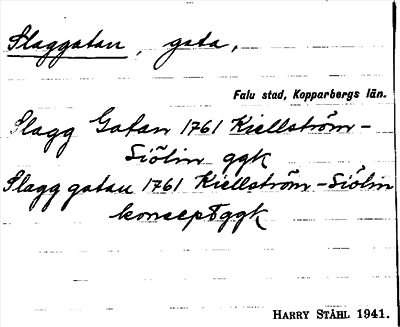 Slaggatan, gata,
Falu stad, Kopparbergs län.
Slagg Gatan 1761 Kiellström-
Siölin ggk
Slagg gatan 1761 Kiellström-Siölin
konceptggk
HARRY STÅHL 1941.